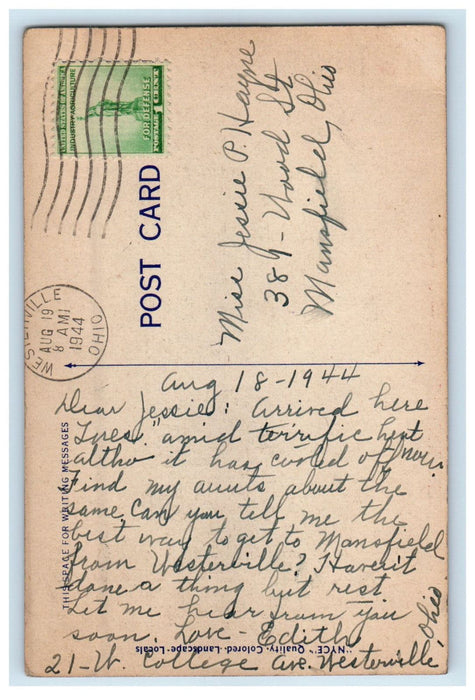 UNITED STATES OF AMERICA
INDUSTRY AGRICULTURE
FOR DEFENSE
POSTAGE 1 CENT
WESTERVILLE
AUG 19
8 AM
1944
OHIO
POST CARD
Miss Jessie P. Hayne
389 - Wood St
Mansfield, Ohio
THIS SPACE FOR WRITING MESSAGES
Aug 18 - 1944
Dear Jessie: Arrived here
Tues." amid terrific heat
altho it has cooled off now.
Find my aunts about the
same. Can you tell me the
best way to get to Mansfield
from Westerville? Haven't
done a thing but rest
Let me hear from you
soon. Love - Edith
21 - W. College Ave. Westerville, Ohio
"NYCE" Quality-Colored-Landscape-Locals